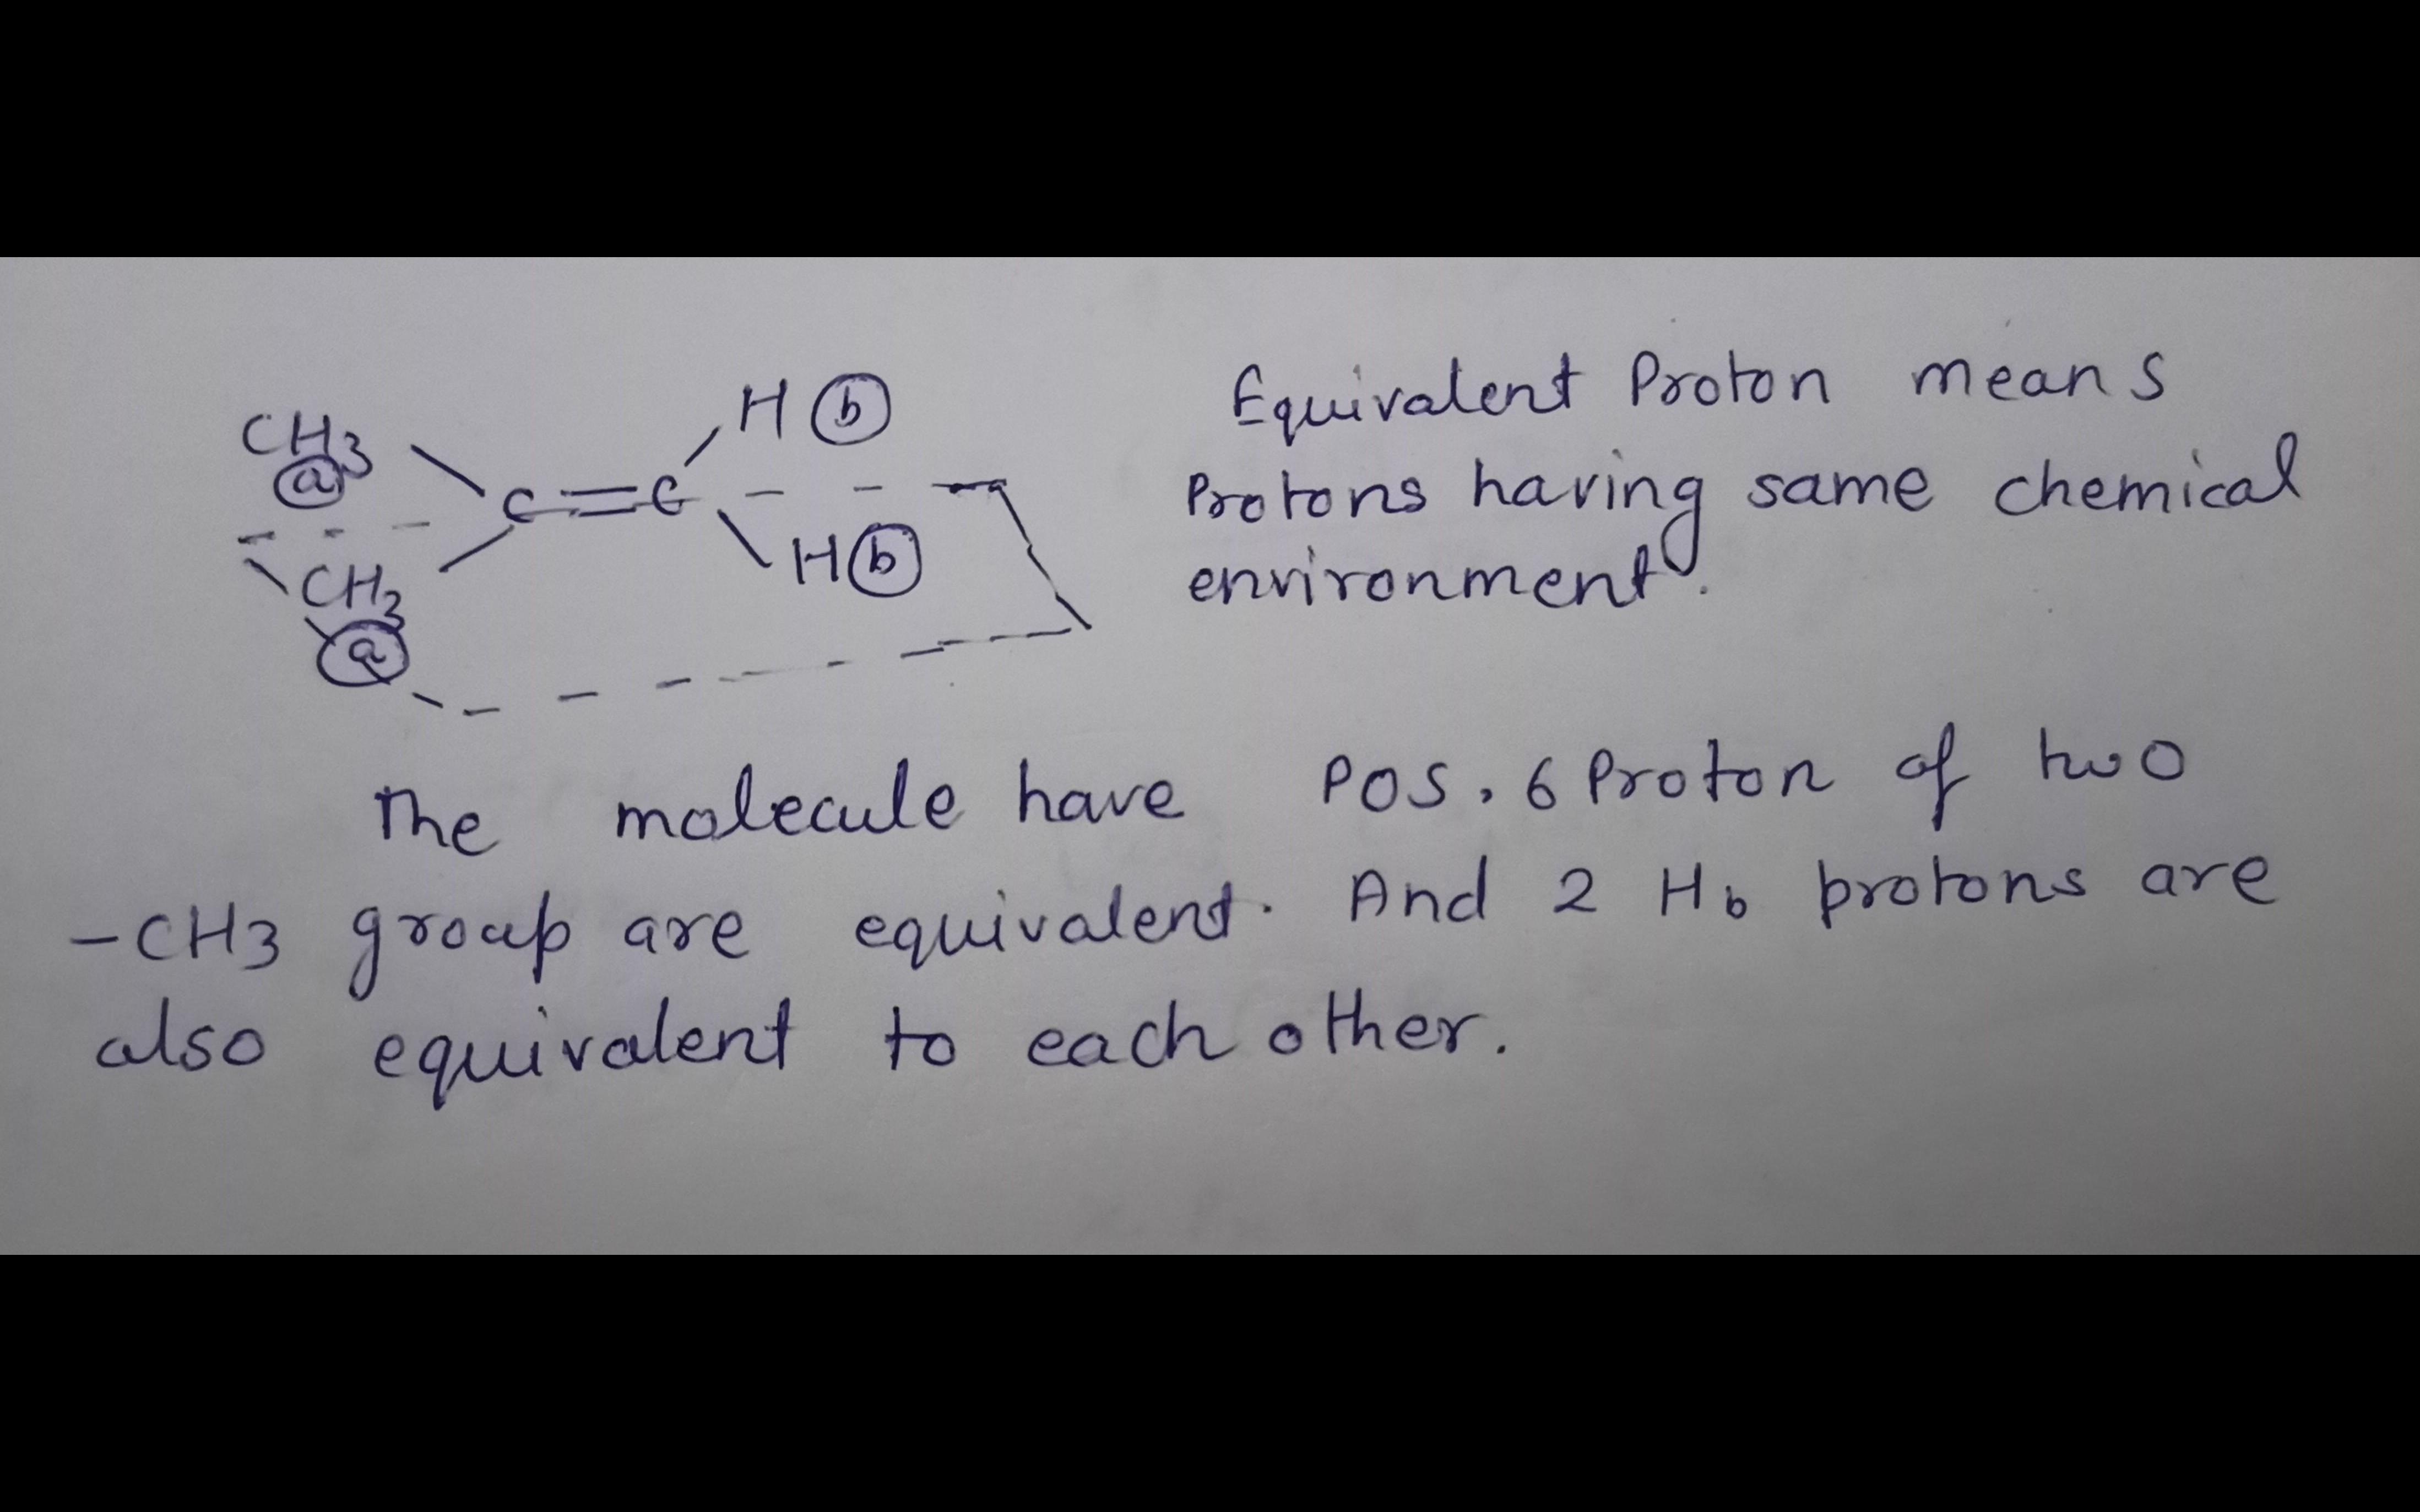 CH3 H b
a
C = C
CH3 H b
a
Equivalent Proton means
Protons having same chemical
environment.
The molecule have POS. 6 Proton of two
-CH3 group are equivalent. And 2 Hb protons are
also equivalent to each other.